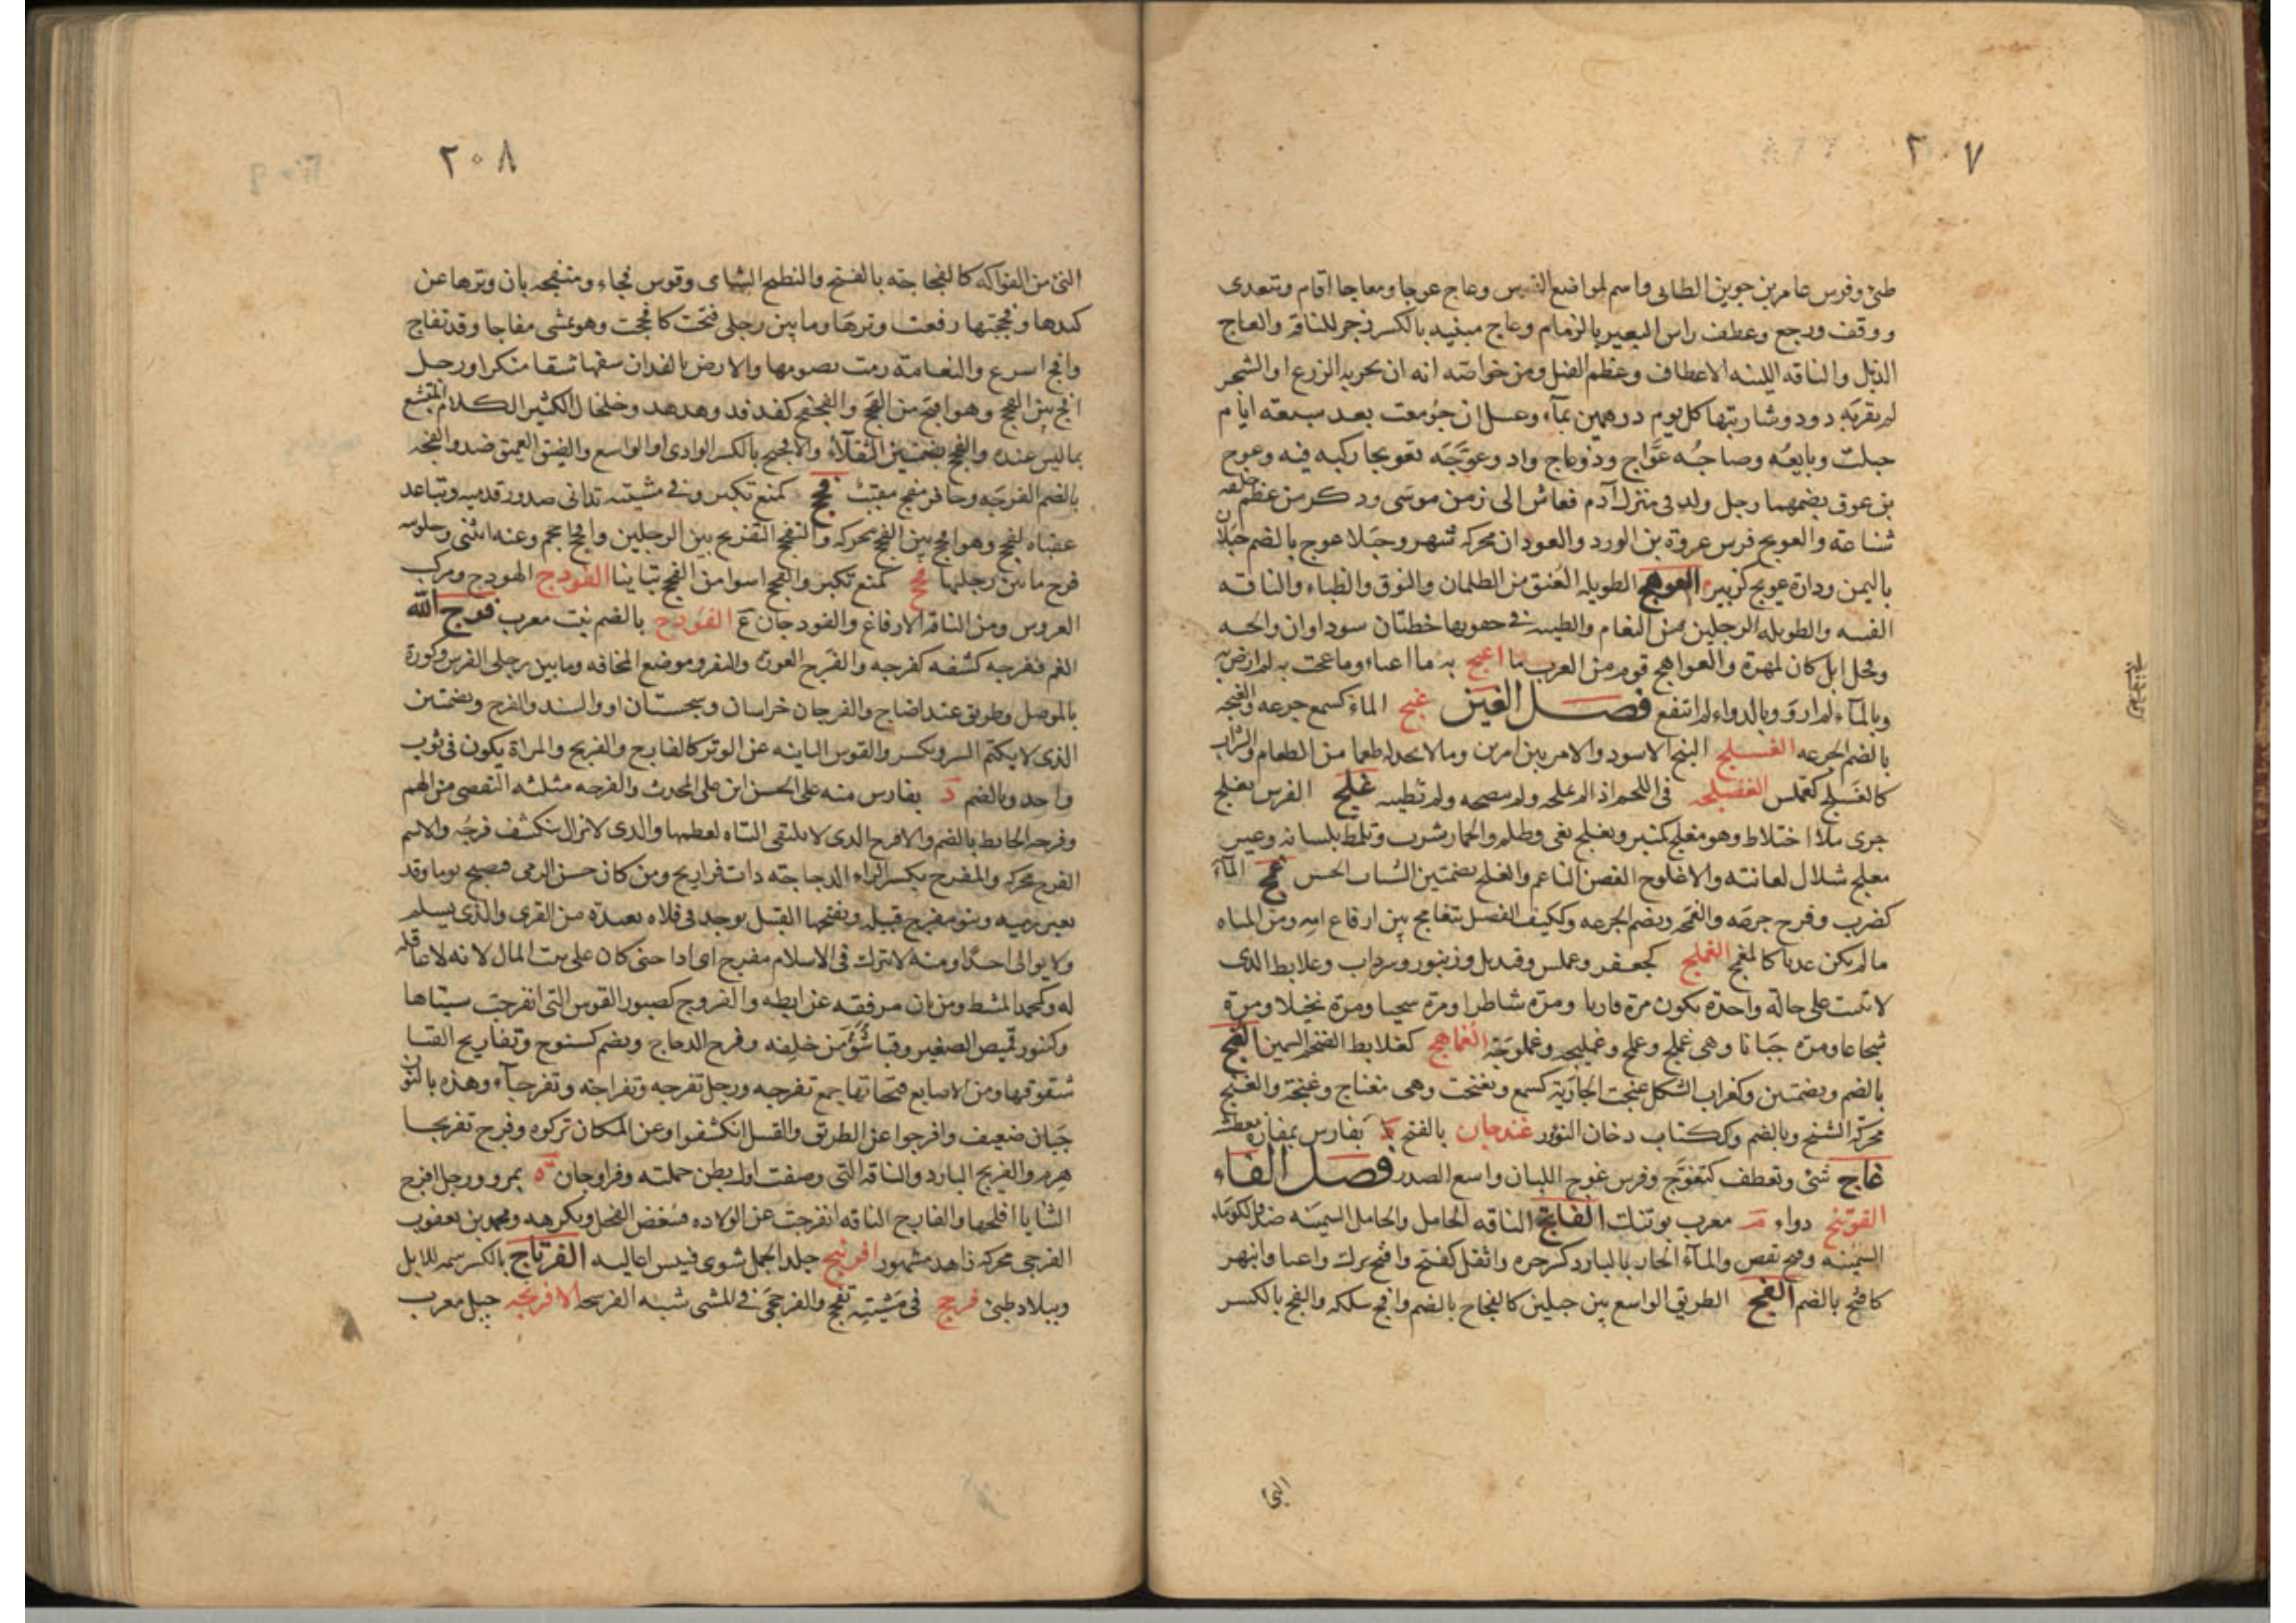 ٢٠٧
طئ وفرس عامر بن جوين الطائى واسم لمواضع التيس وعاج عوجا ومعاجا اقام وتتعدى
ووقف ورجع وعطف راس البعير بالزمام وعاج مبنيه بالكسر زجر للناقه والعاج
الذبل والناقه اللينه الاعطاف وعظم الفيل ومن خواصه انه ان بخر به الزرع او الشجر
لم يقربه دود وشاربتها كل يوم درهمين بماء وعسل ان جومعت بعد سبعة ايام
حبلت وبايعه وصاحبه عوّاج وذو عاج واد وعوّجه تعويجا ركبه فيه وعوج
بن عوق بضمهما رجل ولد فى منزل آدم فعاش الى زمن موسى وذكر من عظم خلقه
شناعة والعويج فرس عروة بن الورد والعوجان محركه نهر وجبلا عوج بالضم جبلان
باليمن ودارة عويج كزبير العوهج الطويله العنق من الظلمان والنوق والظباء والناقه
الفتيه والطويله الرجلين من النعام والظبيه فى حقويها خطتان سوداوان والحيه
وفحل ابل كان لمهرة والعواهج قوم من العرب ما اعيج به ما اعباء وما عجت به لم ارض به
وبالماء لم ارو وبالدواء لم انتفع فصل الغين غبج الماء كسمع جرعه والغبجه
بالضم الجرعه الغسلج البنج الاسود والامر بين امرين وما لا تجد له طعما من الطعام والشراب
كالغسلج كعملس الغضلجه فى اللحم اذا لم علحه ولم ينضجه ولم تطيبه غلج الفرس يغلج
جرى بلا اختلاط وهو مغلج كمنبر وتغلج بغى وظلم والحمار شرب وتلمظ بلسانه وعير
مغلج شلال لعانته والاغلوج الغصن الناعم والغلج بضمتين الشباب الحسن غمج الماء
كضرب وفرح جرعه والغمجه وبضم الجرعه وككيف الفصيل يتغامج بين ارفاع امه ومن المياه
ما لم يكن عذبا كالمغمج الغملج كجعفر وعملس وقنديل وزنبور وسرداب وعلابط الذى
لا يثبت على حالة واحدة يكون مرة قاريا ومرة شاطرا ومرة سخيا ومرة بخيلا ومرة
شجاعا ومرة جبانا وهى غملج وغملج وغمليجه وغملوجة الغماهج كعلابط الضخم السمين الغنج
بالضم وبضمتين وكغراب الشكل غنجت الجارية كسمع وتغنجت وهى مغناج وغنجة والغنج
محركه الشنج وبالضم وككتاب دخان النؤر غندجان بالفتح د بفارس بمفازة معطشه
غاج تثنى وتعطف كتغوّج وفرس غوج اللبان واسع الصدر فصل الفاء
الفوتنج دواء م معرب بوتنك الفاثج الناقه الحامل والحائل السمينه ضد والكوماء
السمينه وفثج نقص والماء الحار بالبارد كسر حره واثقل كفتج وافثج ترك واعيا وانبهر
كافثج بالضم الفج الطريق الواسع بين جبلين كالفجاج بالضم وافج سلكه والفج بالكسر
البى
٢٠٨
النئ من الفواكه كالفجاجة بالفتح والبطيخ الشامى وقوس فجاء ومنفجه بان وترها عن
كبدها وفججتها رفعت وترها وما بين رجلى فتحت كافججت وهو يمشى مفاجا وقد تفاج
وافج اسرع والنعامة رمت بصومها والارض بالفدان شقها شقا منكرا ورجل
افج بين الفجج وهو اقبح من الفحج والفجفج كفدفد وهدهد وخلخال الكثير الكلام المتشبع
بما ليس عنده والفجج بضمتين الثقلاء والافجيج بالكسر الوادى او الواسع والضيق العميق ضد والفجه
بالضم الفرجه وحافر مفج مقبب فحج كمنع تكبر وفى مشيته تدانى صدور قدميه وتباعد
عقباه كفحج وهو افحج بين الفحج محركه والتفحج التفريج بين الرجلين وافحج احجم وعنه انثنى وحلوبته
فرج ما بين رجليها فخج كمنع تكبر والفخج اسوا من الفحج تباينا الفودج الهودج ومركب
العروس ومن الناقه الارفاغ والفودجان ع الفوذج بالضم نبت معرب فرج الله
الغم يفرجه كشفه كفرجه والفرج العورة والثغر وموضع المخافه وما بين رجلى الفرس وكورة
بالموصل وطريق عند اضاخ والفرجان خراسان وسجستان او والسند والفرج وبضمتين
الذى لا يكتم السر ويكسر والقوس البائنه عن الوتر كالفارج والفريج والمراة تكون فى ثوب
واحد وبالضم د بفارس منه على الحسن ابن على المحدث والفرجه مثلثه التفصى من الهم
وفرجه الحايط بالضم والافرج الذى لا تلتقى اليتاه لعظمهما والذى لا يزال ينكشف فرجه والاسم
الفرج محركه والمفرج بكسر الراء الدجاجة ذات فراريج ومن كان حسن الرمى فيصبح يوما وقد
تغير رميه وبنو مفرج قبيله وبفتحها القتيل يوجد فى فلاه بعيدة من القرى والذى يسلم
ولا يوالى احدا ومنه لا يترك فى الاسلام مفرج اى اذا جنى كان على بيت المال لانه لا عاقله
له وكمحمد المشط ومن بان مرفقه عن ابطه والفروج كصبور القوس التى انفرجت سيتاها
وكتنور قميص الصغير وقبا شق من خلفه وفرخ الدجاج ويضم كسبوح وتفاريج القبا
شقوقها ومن الاصابع فتحاتها جمع تفرجه ورجل تفرجه وتفراجة وتفرجاء وهذه بالنون
جبان ضعيف وافرجوا عن الطريق والقتيل انكشفوا وعن المكان تركوه وفرج تفريجا
هرم والفريج البارد والناقه التى وضعت اول بطن حملته وفراوجان ة بمرو ورجل افرج
الثنايا افلجها والفارج الناقه انفرجت عن الولاده فتبغض الفحل وتكرهه ومحمد بن يعقوب
الفرجى محركه زاهد مشهور افرنبج جلد الحمل شوى فيبس اعاليه الفرتاج بالكسر سمه للابل
وببلاد طئ فرحج فى مشيته تفحج والفرحجى فى المشى شبه الفرشحه الافرنجه جيل معرب